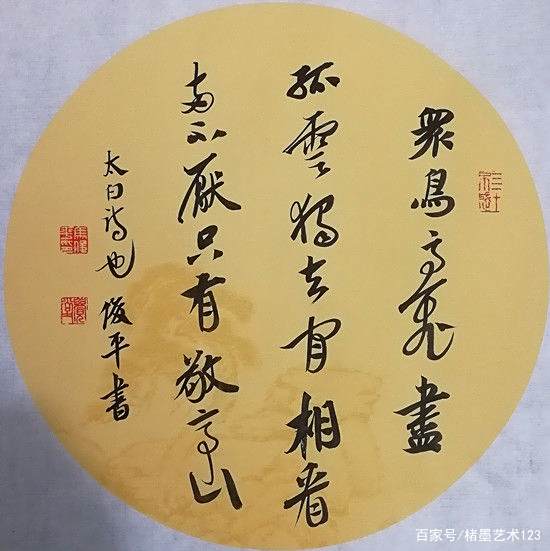 眾鳥高飛盡
孤雲獨去閒相看
兩不厭只有敬亭山
太白詩也 俊平書
百家号/楮墨艺术123